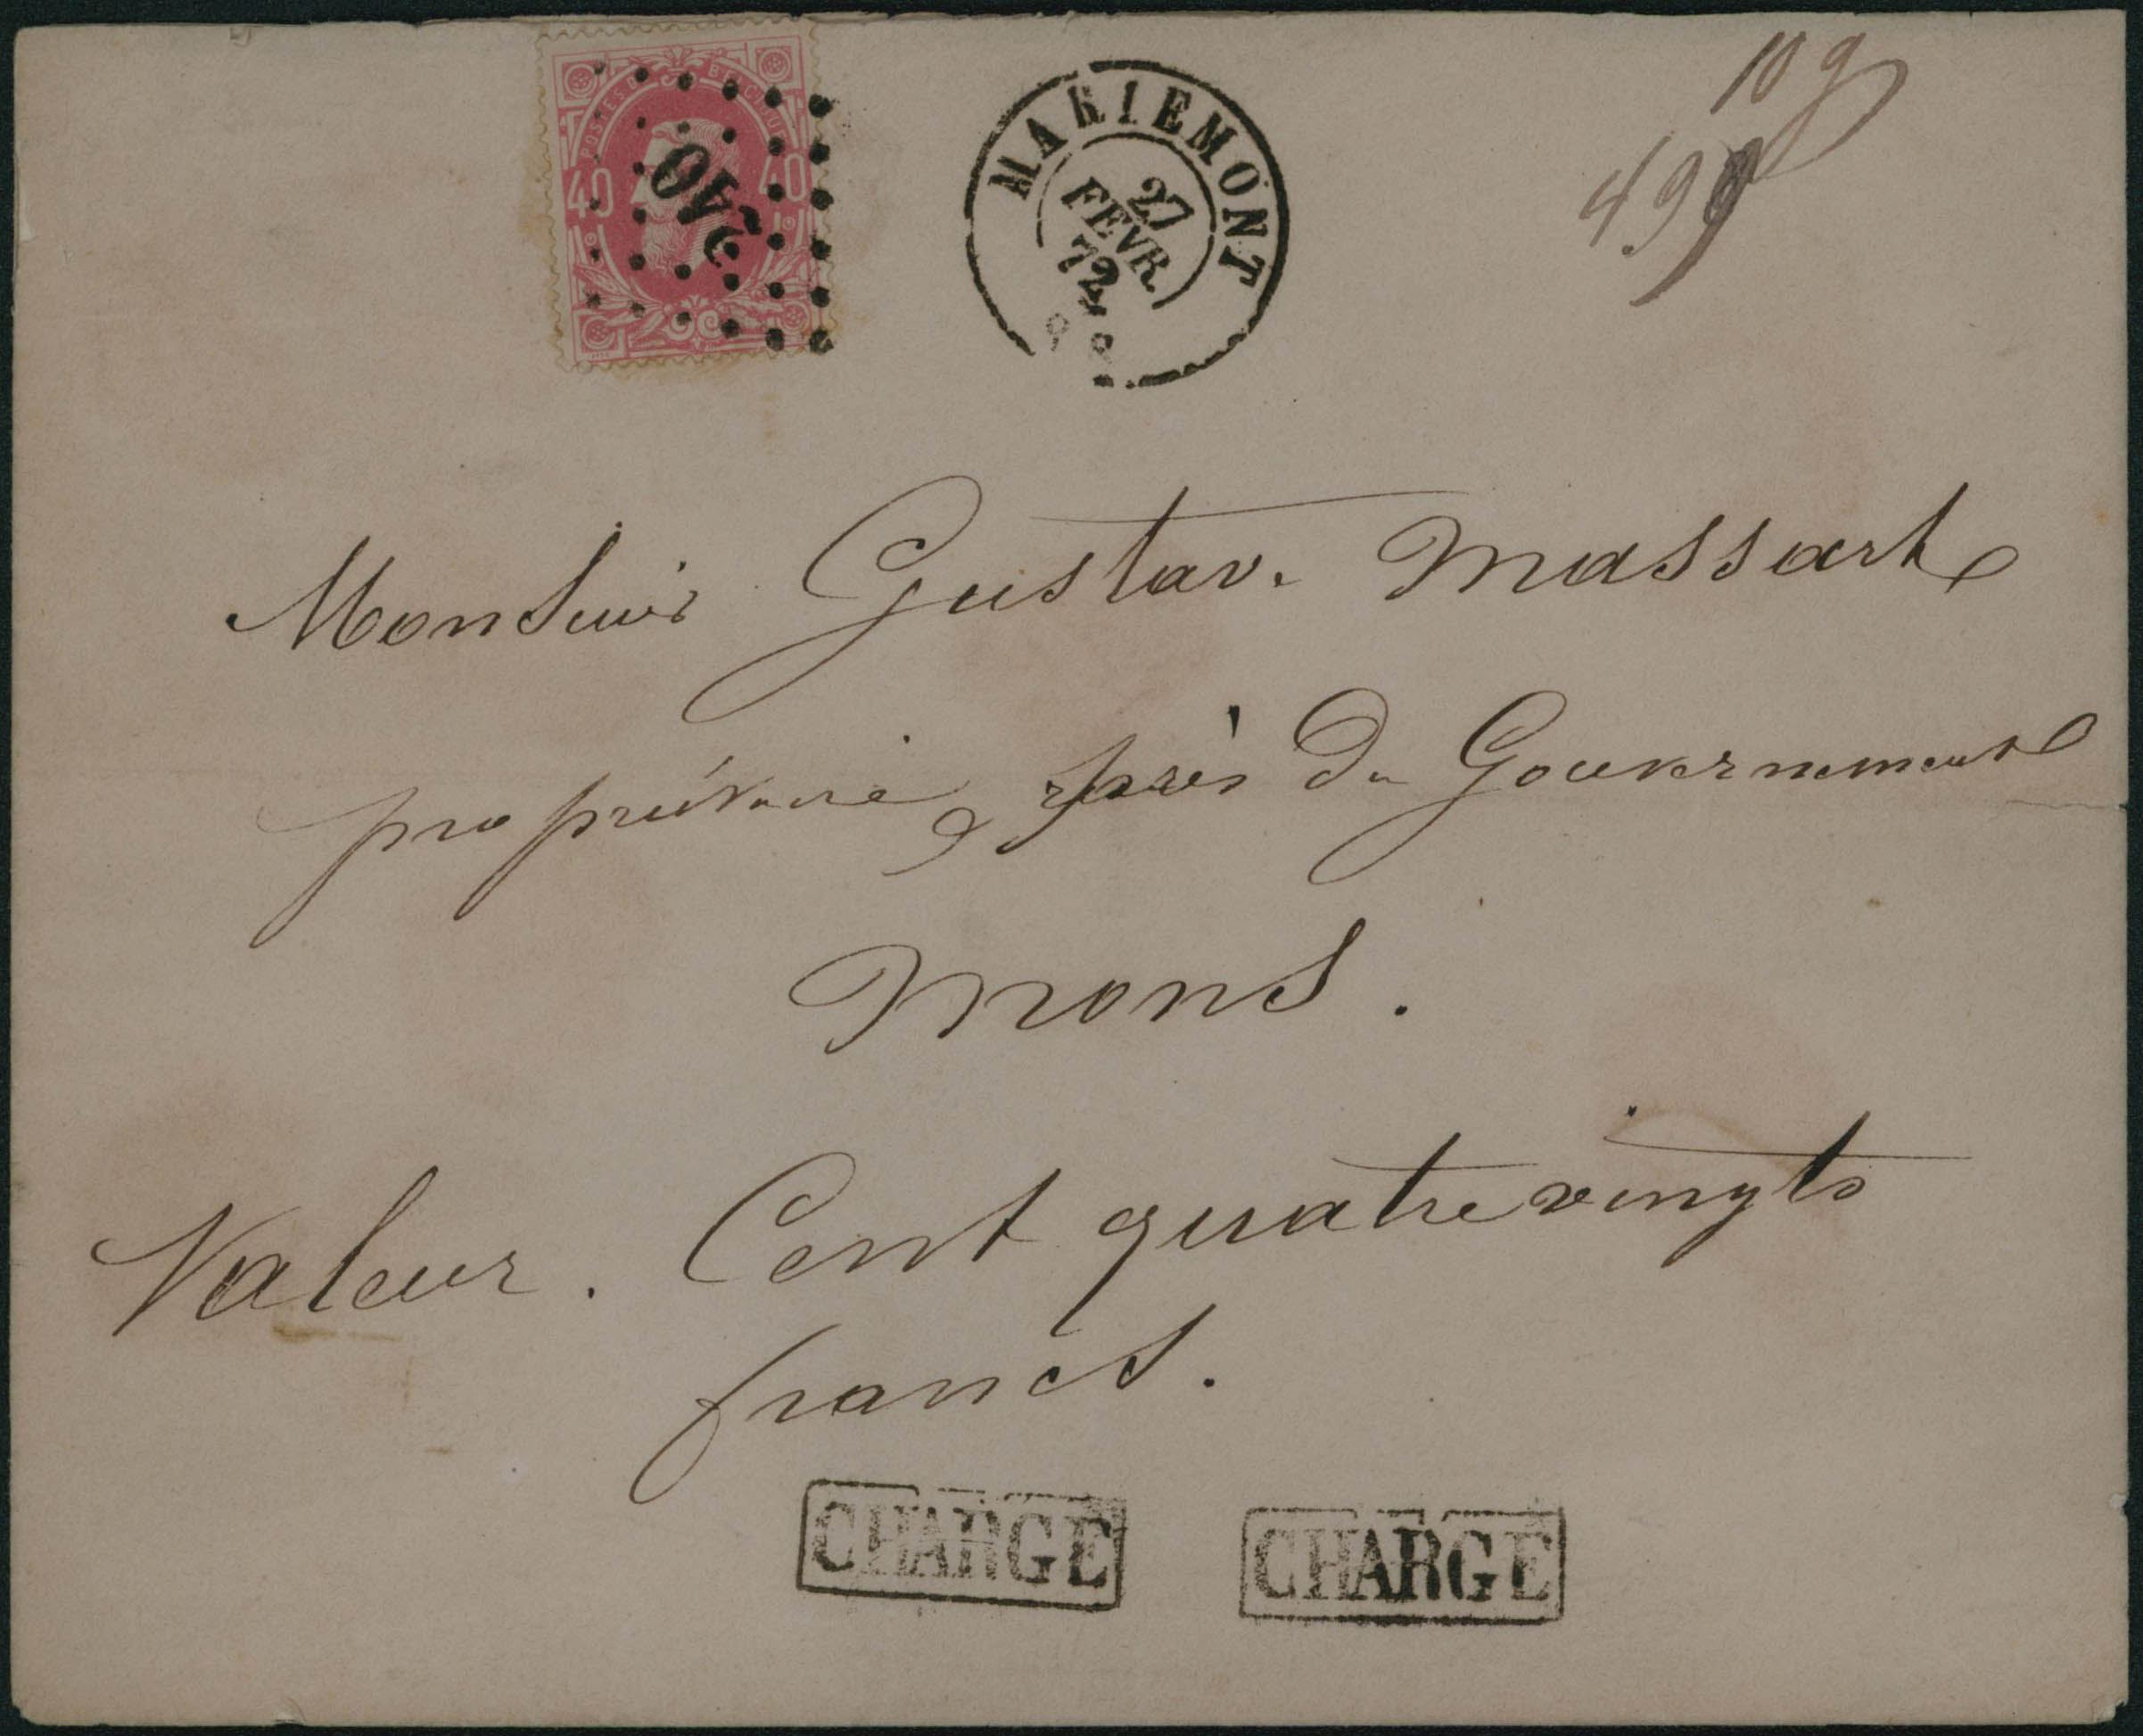 POSTES BELGIQUE
40 40
240
MARIEMONT
27
FEVR.
72
10 g
499
Monsieur Gustav. Massart
propriétaire, près du Gouvernement
Mons.
Valeur. Cent quatre vingts
francs.
CHARGÉ CHARGÉ